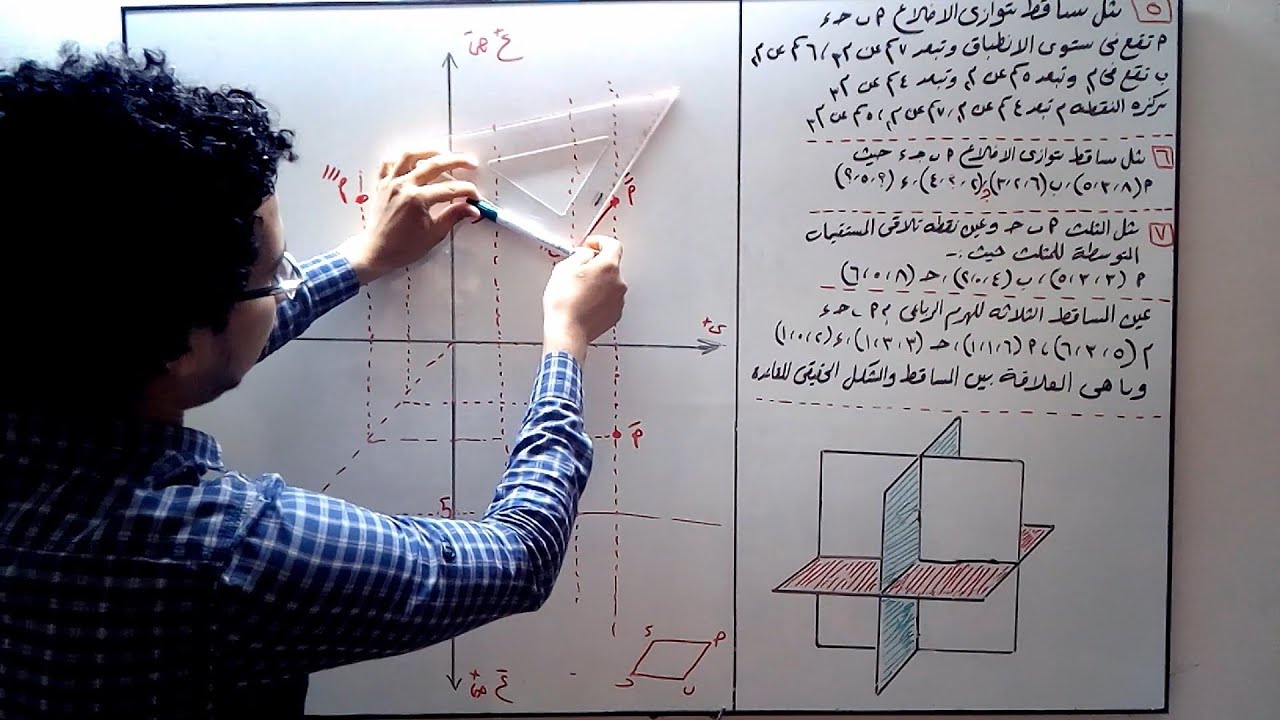 ٥ مثل مساقط متوازى الاضلاع م ب حـ ء
م تقع فى مستوى الانطباق وتبعد ٧سم عن م٣ ، ٦سم عن م١
ب تقع فى م١ وتبعد ٥سم عن م٢ وتبعد ٤سم عن م٣
مركزه النقطه م تبعد ٤سم عن م١، ٧سم عن م٢، ٥سم عن م٣
٦ مثل مساقط متوازى الاضلاع م ب حـ ء حيث
م(٨، ٣، ٥)، ب(٦، ٢، ٣)، حـ(٢، ؟، ٤)، ء(؟، ٥، ؟)
٧ مثل المثلث م ب حـ وعين نقطه تلاقى المستقيمات
المتوسطة للمثلث حيث :-
م (٣، ٢، ٥)، ب (٤، ٥، ٢)، حـ (٨، ٥، ٦)
عين المساقط الثلاثه للهرم الرباعى م م ب حـ ء
م (٥، ٣، ٦)، م(٦، ١، ١)، حـ (٣، ٣، ١)، ء(٢، ٥، ١)
وما هى العلاقة بين المساقط والشكل الحقيقى للقاعده
ع+ صَ
م'''
م''
ب''
س+
م'
5
صَ+ عَ
ء م
حـ ب